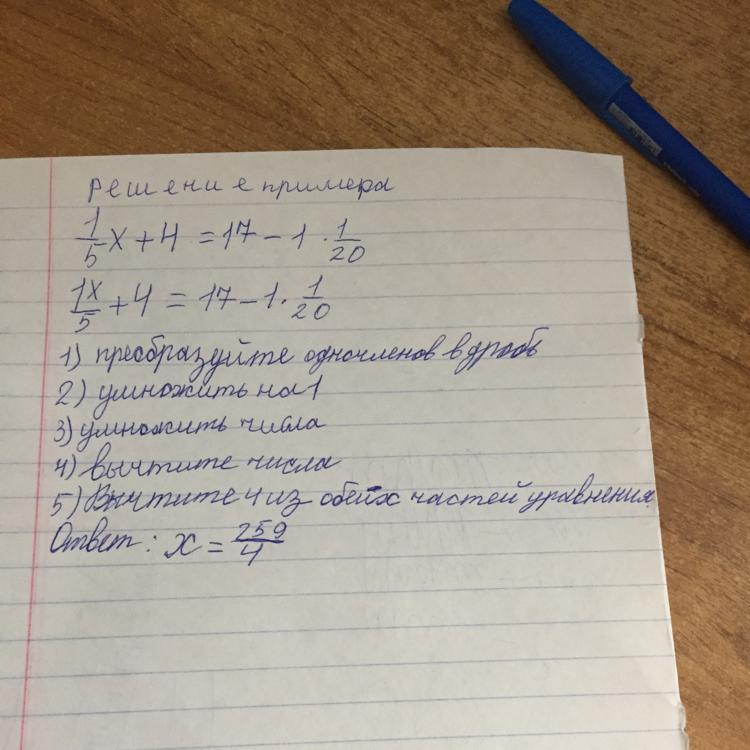 Решение примера
1/5 x + 4 = 17 - 1 · 1/20
1x/5 + 4 = 17 - 1 · 1/20
1) преобразуйте одночленов в дробь
2) умножить на 1
3) умножить числа
4) вычтите числа
5) Вычтите 4 из обейх частей уравнения
Ответ: x = 259/4